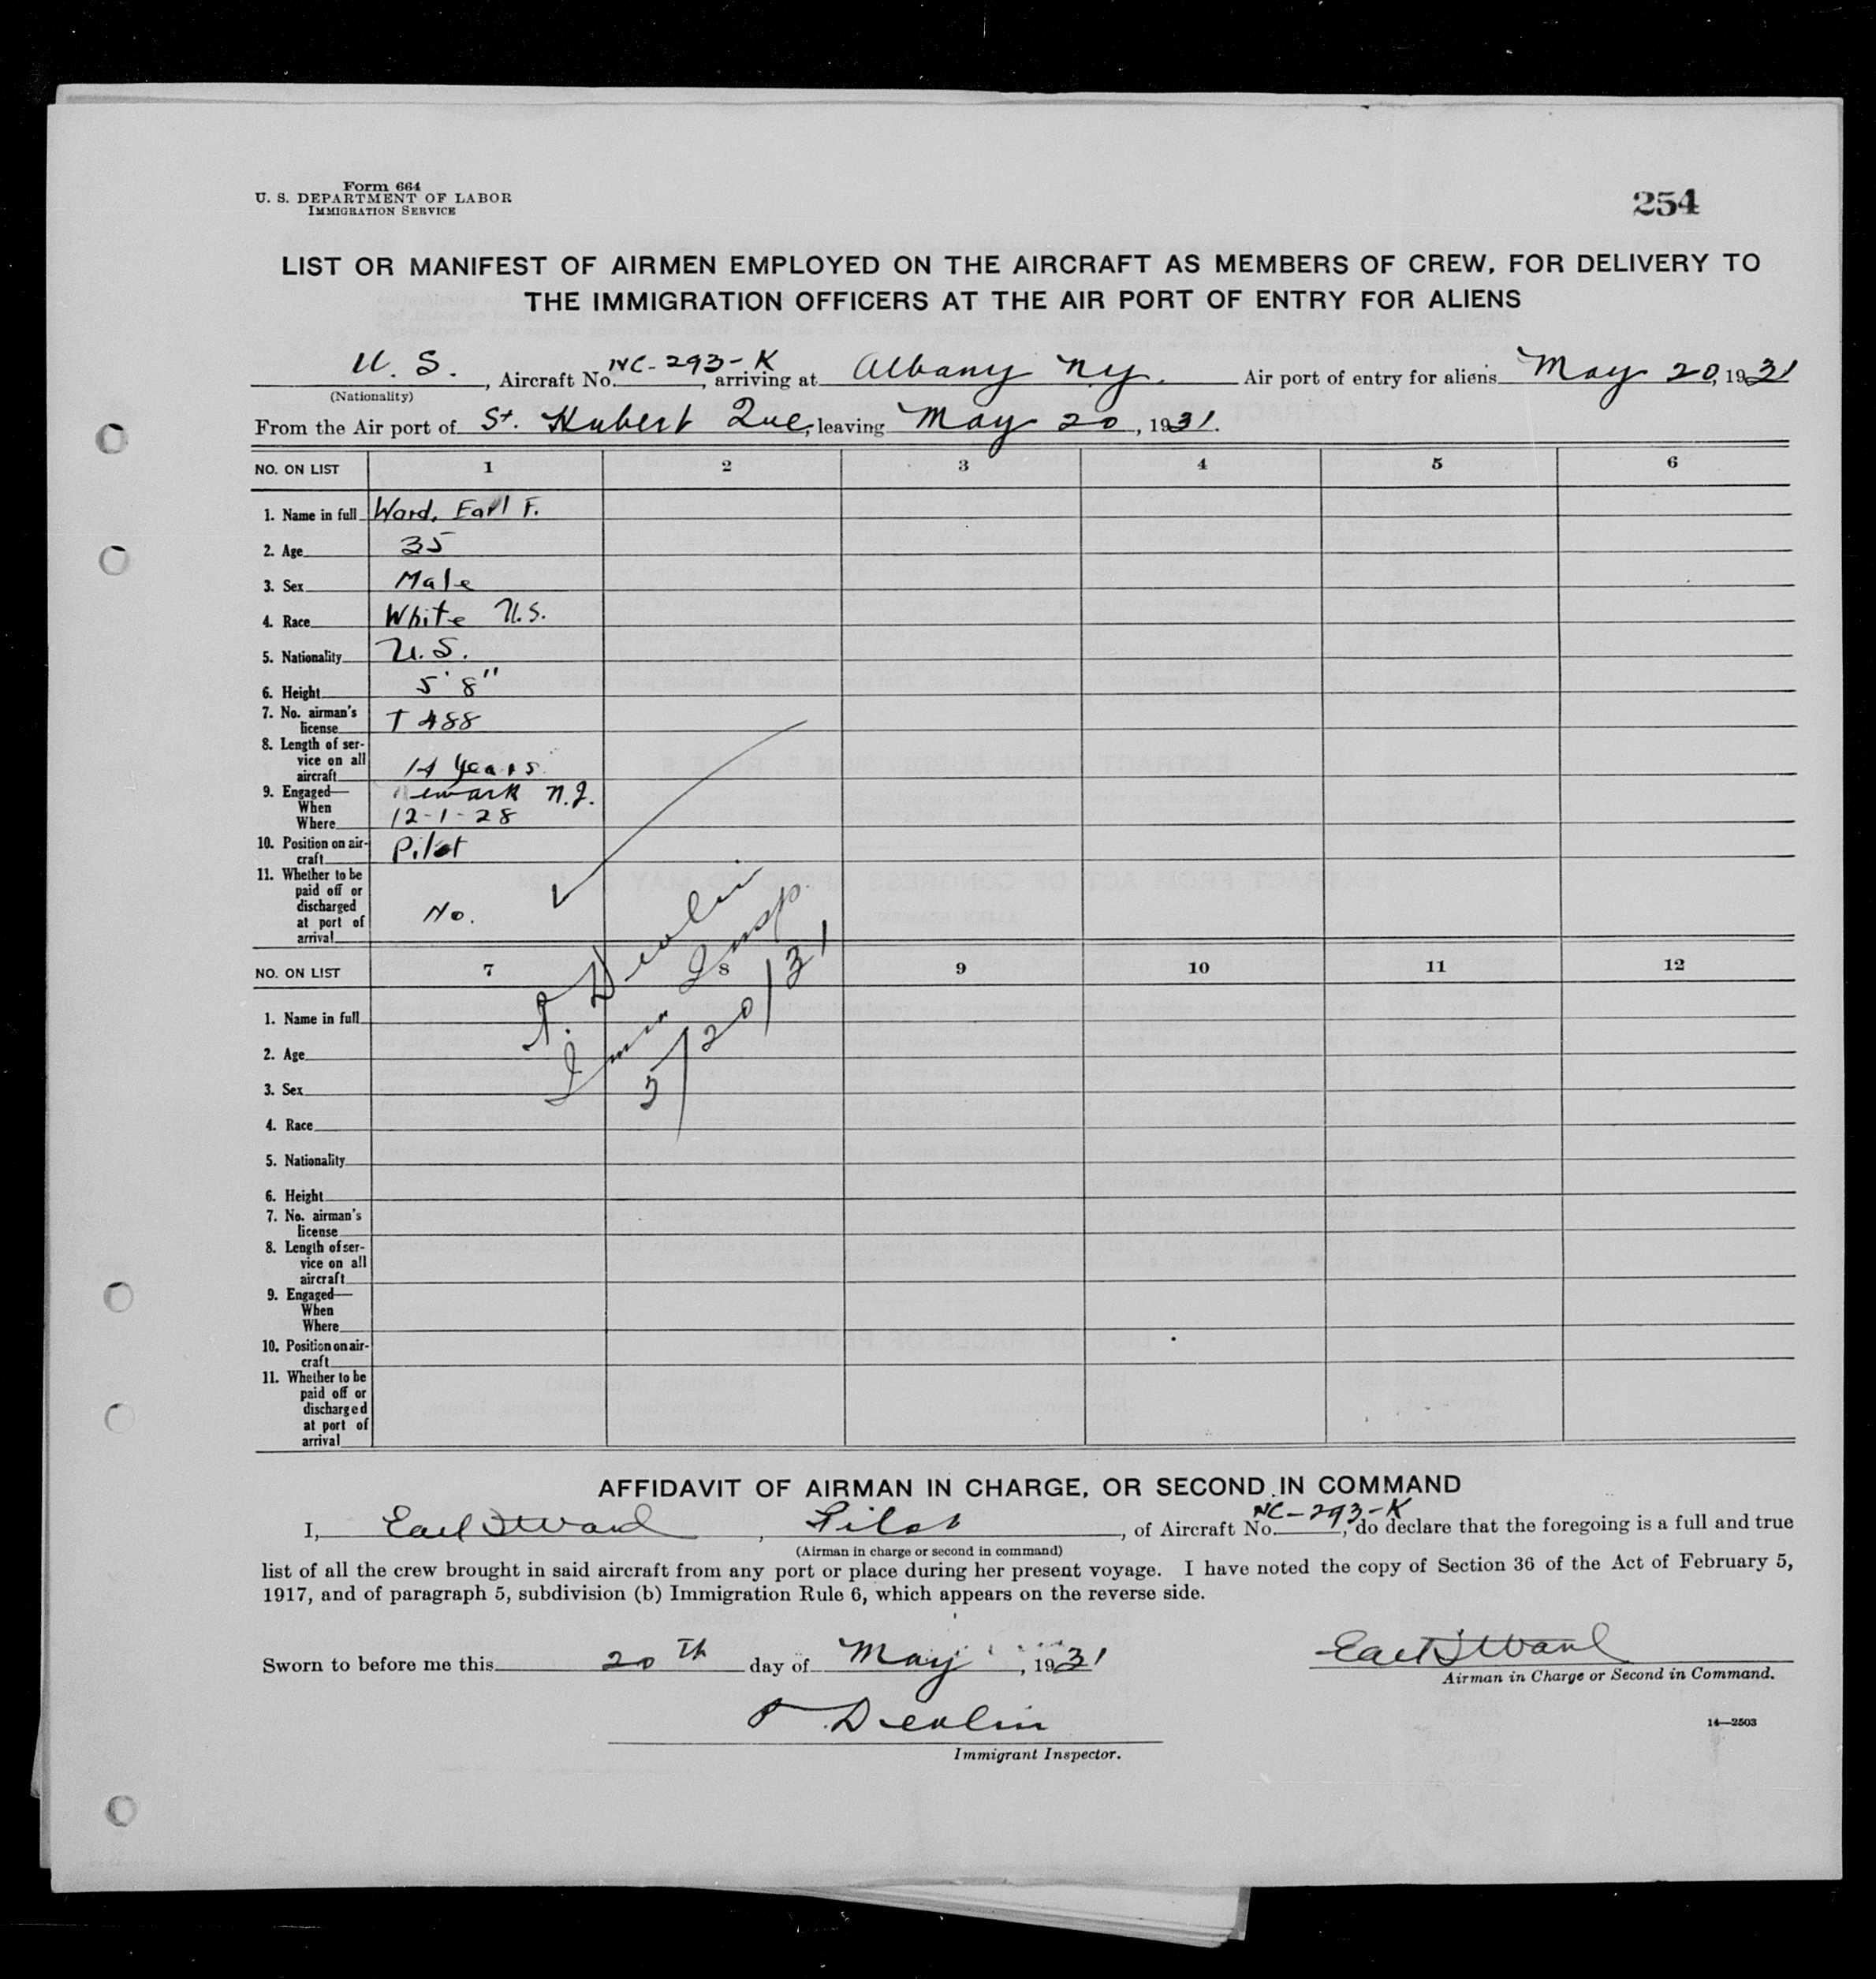 Form 664
U. S. DEPARTMENT OF LABOR
IMMIGRATION SERVICE
254
LIST OR MANIFEST OF AIRMEN EMPLOYED ON THE AIRCRAFT AS MEMBERS OF CREW, FOR DELIVERY TO
THE IMMIGRATION OFFICERS AT THE AIR PORT OF ENTRY FOR ALIENS
U. S., Aircraft No. NC-293-K, arriving at Albany N.y. Air port of entry for aliens May 20, 1931
(Nationality)
From the Air port of St. Hubert Que, leaving May 20, 1931.
NO. ON LIST 1 2 3 4 5 6
1. Name in full Ward, Earl F.
2. Age 35
3. Sex Male
4. Race White U.S.
5. Nationality U.S.
6. Height 5' 8"
7. No. airman's
license T 488
8. Length of ser-
vice on all
aircraft 14 years
9. Engaged— Newark N.J.
When
Where 12-1-28
10. Position on air-
craft Pilot
11. Whether to be
paid off or
discharged
at port of
arrival No.
P. Devlin
Imm Insp.
5/20/31
NO. ON LIST 7 8 9 10 11 12
1. Name in full
2. Age
3. Sex
4. Race
5. Nationality
6. Height
7. No. airman's
license
8. Length of ser-
vice on all
aircraft
9. Engaged—
When
Where
10. Position on air-
craft
11. Whether to be
paid off or
discharged
at port of
arrival
AFFIDAVIT OF AIRMAN IN CHARGE, OR SECOND IN COMMAND
I, Earl F Ward, Pilot, of Aircraft No. NC-293-K, do declare that the foregoing is a full and true
(Airman in charge or second in command)
list of all the crew brought in said aircraft from any port or place during her present voyage. I have noted the copy of Section 36 of the Act of February 5,
1917, and of paragraph 5, subdivision (b) Immigration Rule 6, which appears on the reverse side.
Sworn to before me this 20th day of May, 1931
Earl F Ward
Airman in Charge or Second in Command.
P Devlin
Immigrant Inspector.
14—2503